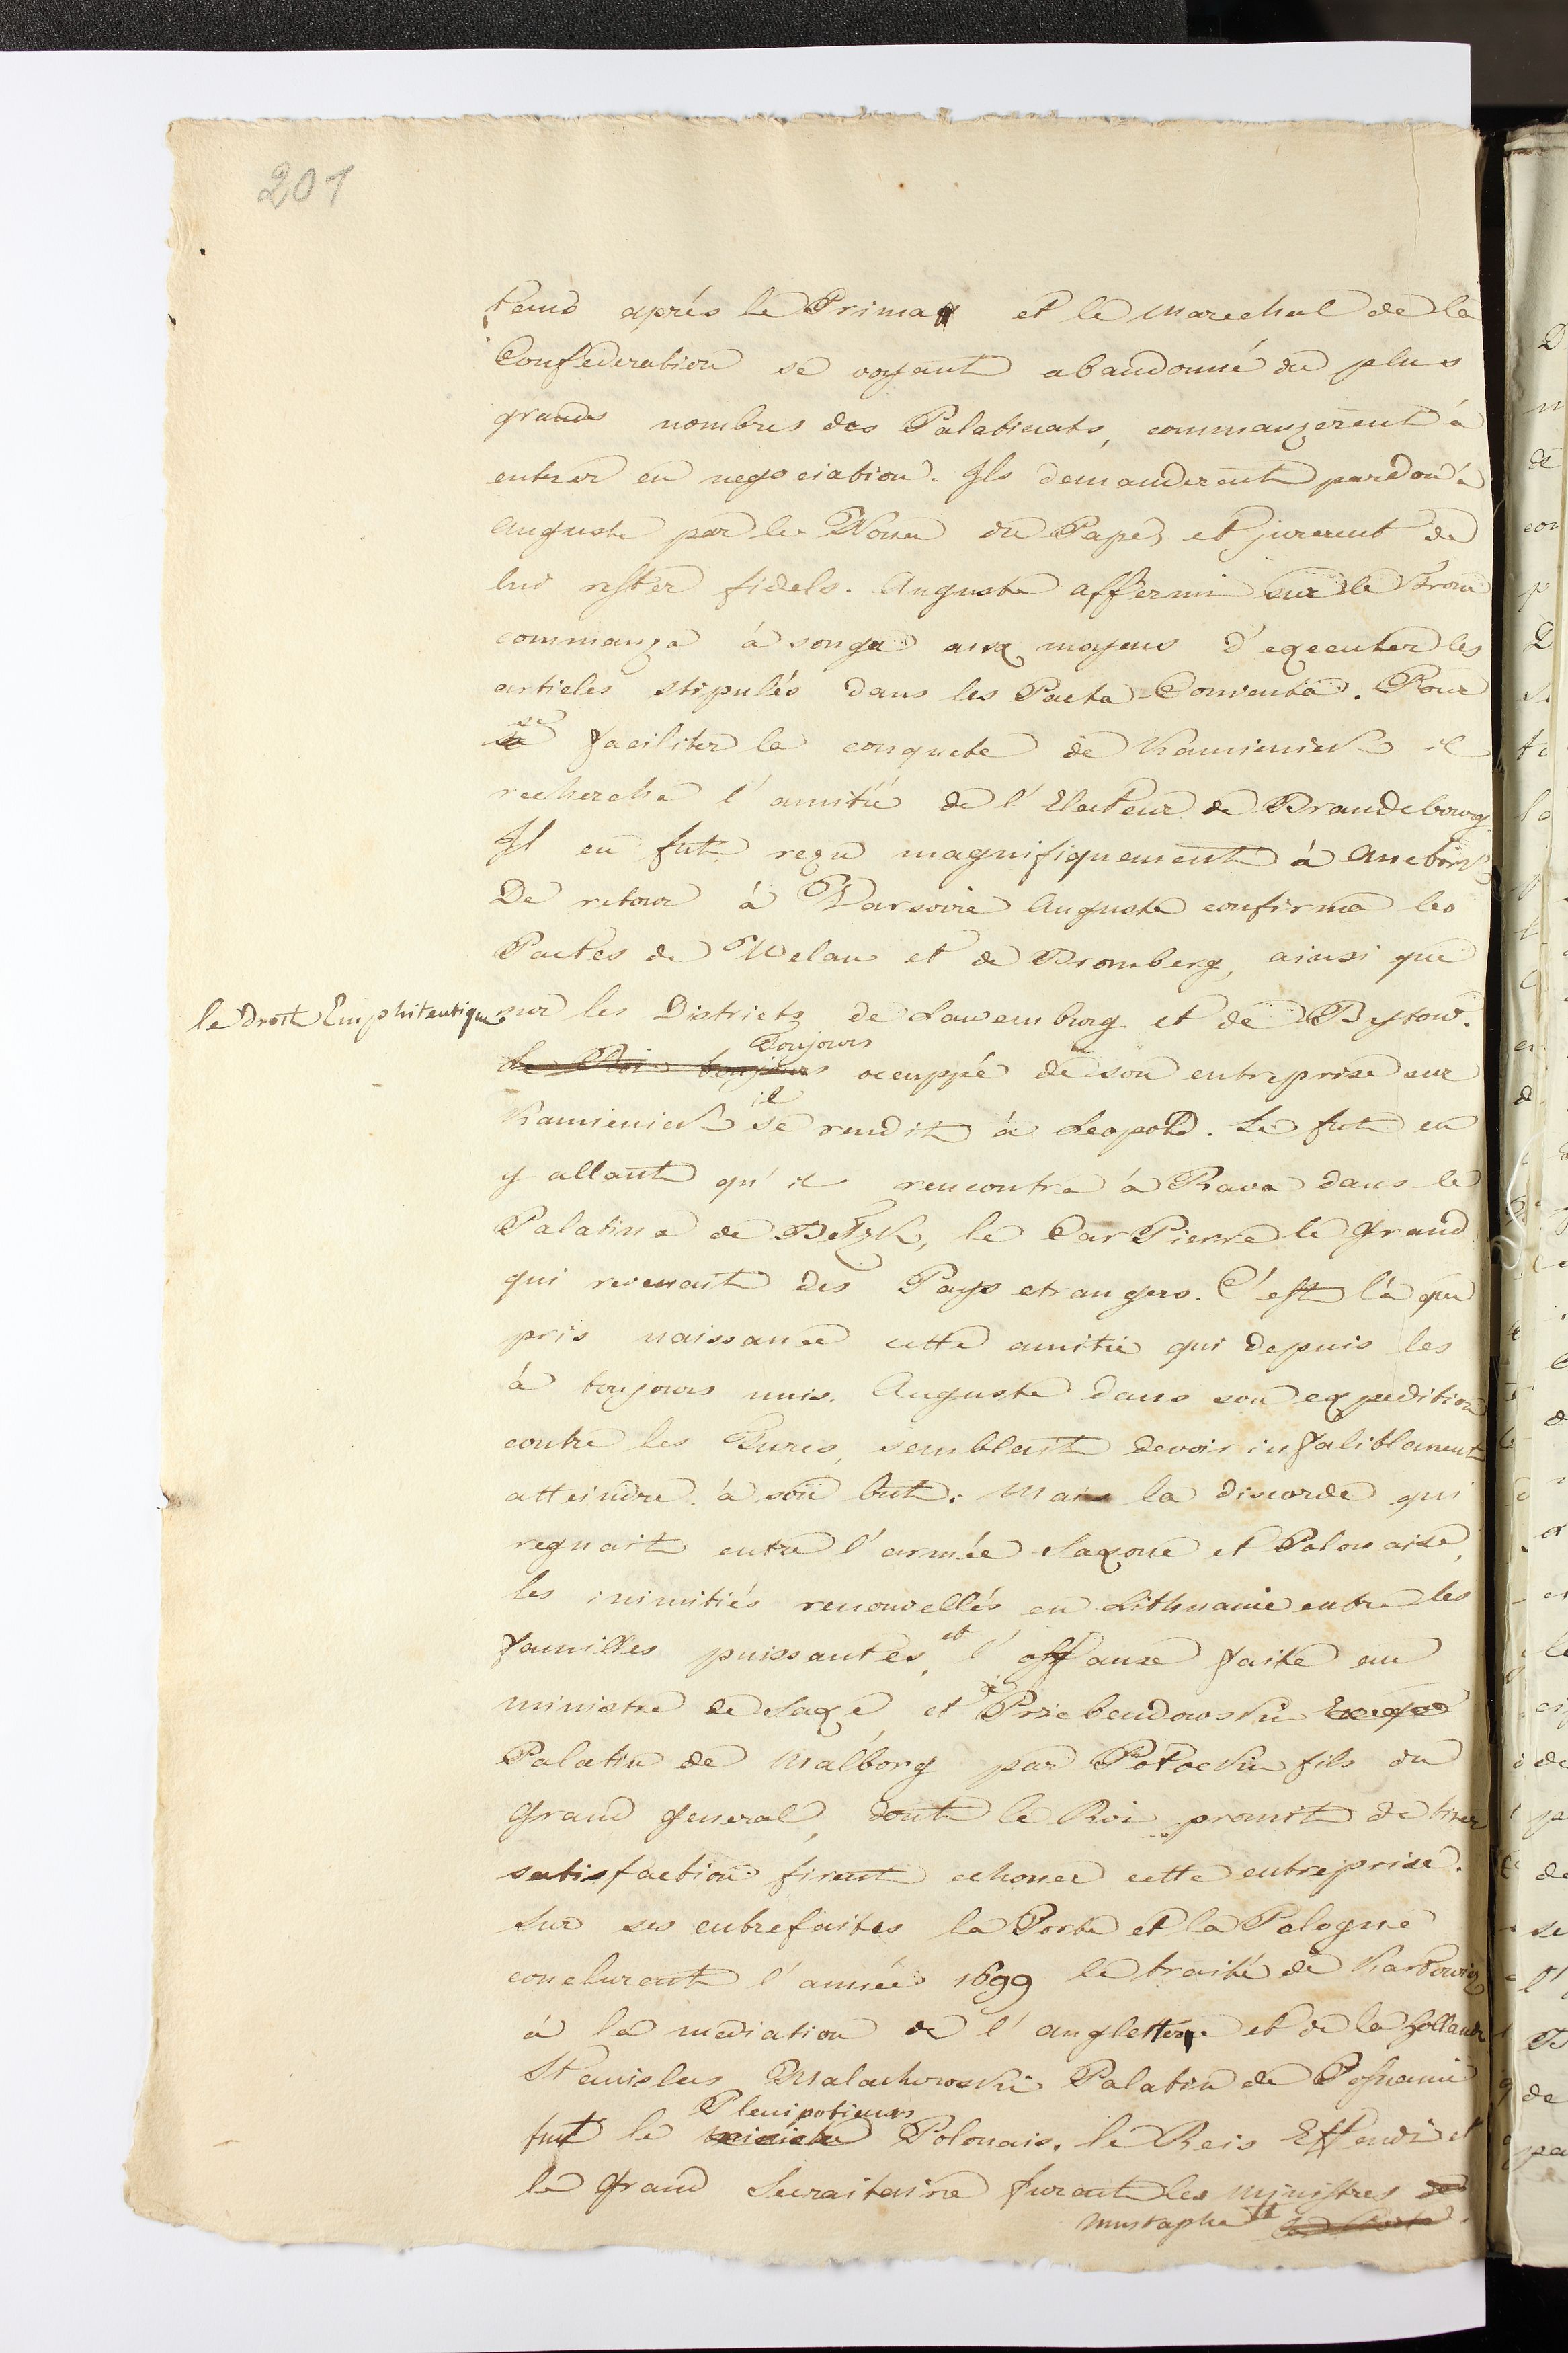 201
tems aprés le Primat et le Marechal de la
Confederation se voyant abandonné du plus
grands nombres des Palatinats, commançerent à
entrer en negociation. Ils demanderent pardon à
Auguste par le Nonce du Pape, et jurerent de
lui rester fidels. Auguste affermi sur le Trone
commança à songer aux moyens d'executer les
articles stipulés dans les Pacta-Conventa. Pour
se faciliter la conquete de Kamieniek il
rechercha l'amitié de l'Electeur de Brandebourg.
Il en fut reçu magnifiquement à
De retour à Warsovie Auguste confirma les
Pactes de Welau et de Bromberg, ainsi que
le droit Emphiteutique sur les Districts de Lawemburg et de Bytow.
Toujours
Le Roi toujours occuppé de son entreprise sur
Kamieniek il se rendit à Leopold. Ce fut en
y allant qu'il rencontra à Rava dans le
Palatina de Belzk, le Car Pierre le Grand
qui revenait des Pays etrangers. C'est là que
pris naissance cette amitié qui depuis les
à toujours unis. Auguste dans son expedition
contre les Turcs, semblait devoir infaliblament
atteindre à son but: Mais la discorde qui
regnait entre l'armée Saxone et Polonaise,
les inimitiés renouvellés en Lithuanie entre les
familles puissantes, et l'offanse faite au
ministre de Saxe, et à Przebendowski
Palatin de Malborg par Potocki fils du
Grand General, dont le Roi promit de tirer
satisfaction firent echouer cette entreprise.
Sur ses entrefaites la Porte et la Pologne
conclurent l'année 1699 le traité de Karlowiz
à la mediation de l'angleterre et de la Hollande
Stanislas Malachowski Palatin de Posnanie
Plenipotieurs
fut le ministre Polonais. le Reis Effendi et
le Grand Secraitaire furent les Ministres de
Mustapha II la Porte.